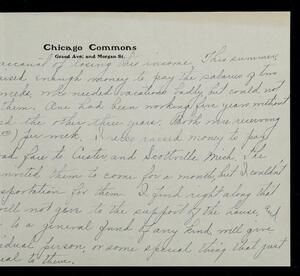 Chicago Commons
Grand Ave. and Morgan St.
account of losing this income. This summer,
raised enough money to pay the salaries of two
weeks, who needed vacations badly but could not
them. One had been working five years without
and the other three years. Both are receiving
per week. I also raised money to pay
road fare to Custer and Scottville Mich. The
invited them to come for a month but couldn't
transportation for them. I find right along that
will not give to the support of the house, and
to a general fund of any kind, will give
individual person, or some special thing that just
to them.